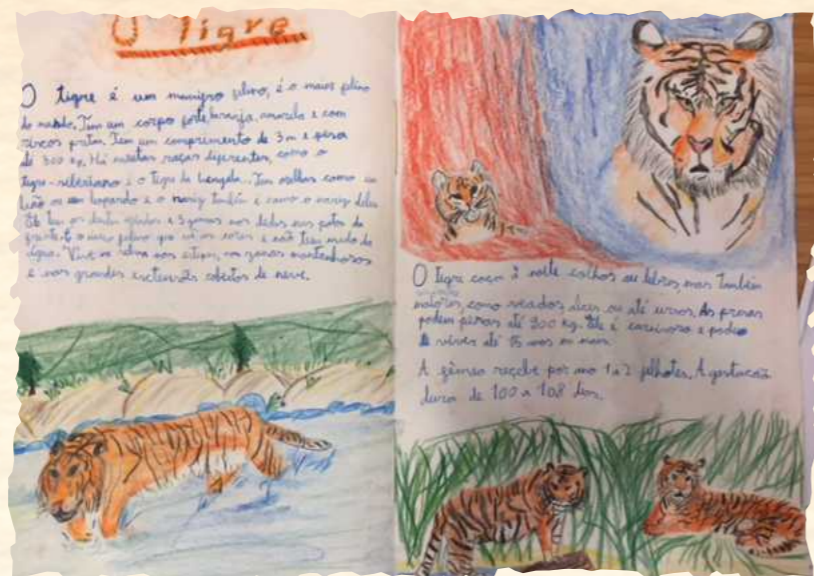 O Tigre
O tigre é um mamífero felino, é o maior felino
do mundo. Tem um corpo forte laranja, amarelo e com
riscos pretos. Tem um comprimento de 3 m e pesa
até 300 kg. Há muitas raças diferentes, como o
tigre-siberiano e o tigre de bengala. Tem orelhas como um
leão ou um leopardo e o nariz também é como o nariz deles.
Ele tem os dentes e 5 garras nos dedos nas patas da
frente. É o único felino que vê as cores e não tem medo da
água. Vive na selva nos, em zonas montanhosas
e nas grandes extensões cobertas de neve.
O tigre caça à noite coelhos ou lebres, mas também
maiores, como veados, alces ou até ursos. As presas
podem pesar até 900 kg. Ele é carnívoro e pode
viver até 15 anos ou mais.
A fêmea recebe por ano 1 a 2 filhotes. A gestação
dura de 100 a 108 dias.